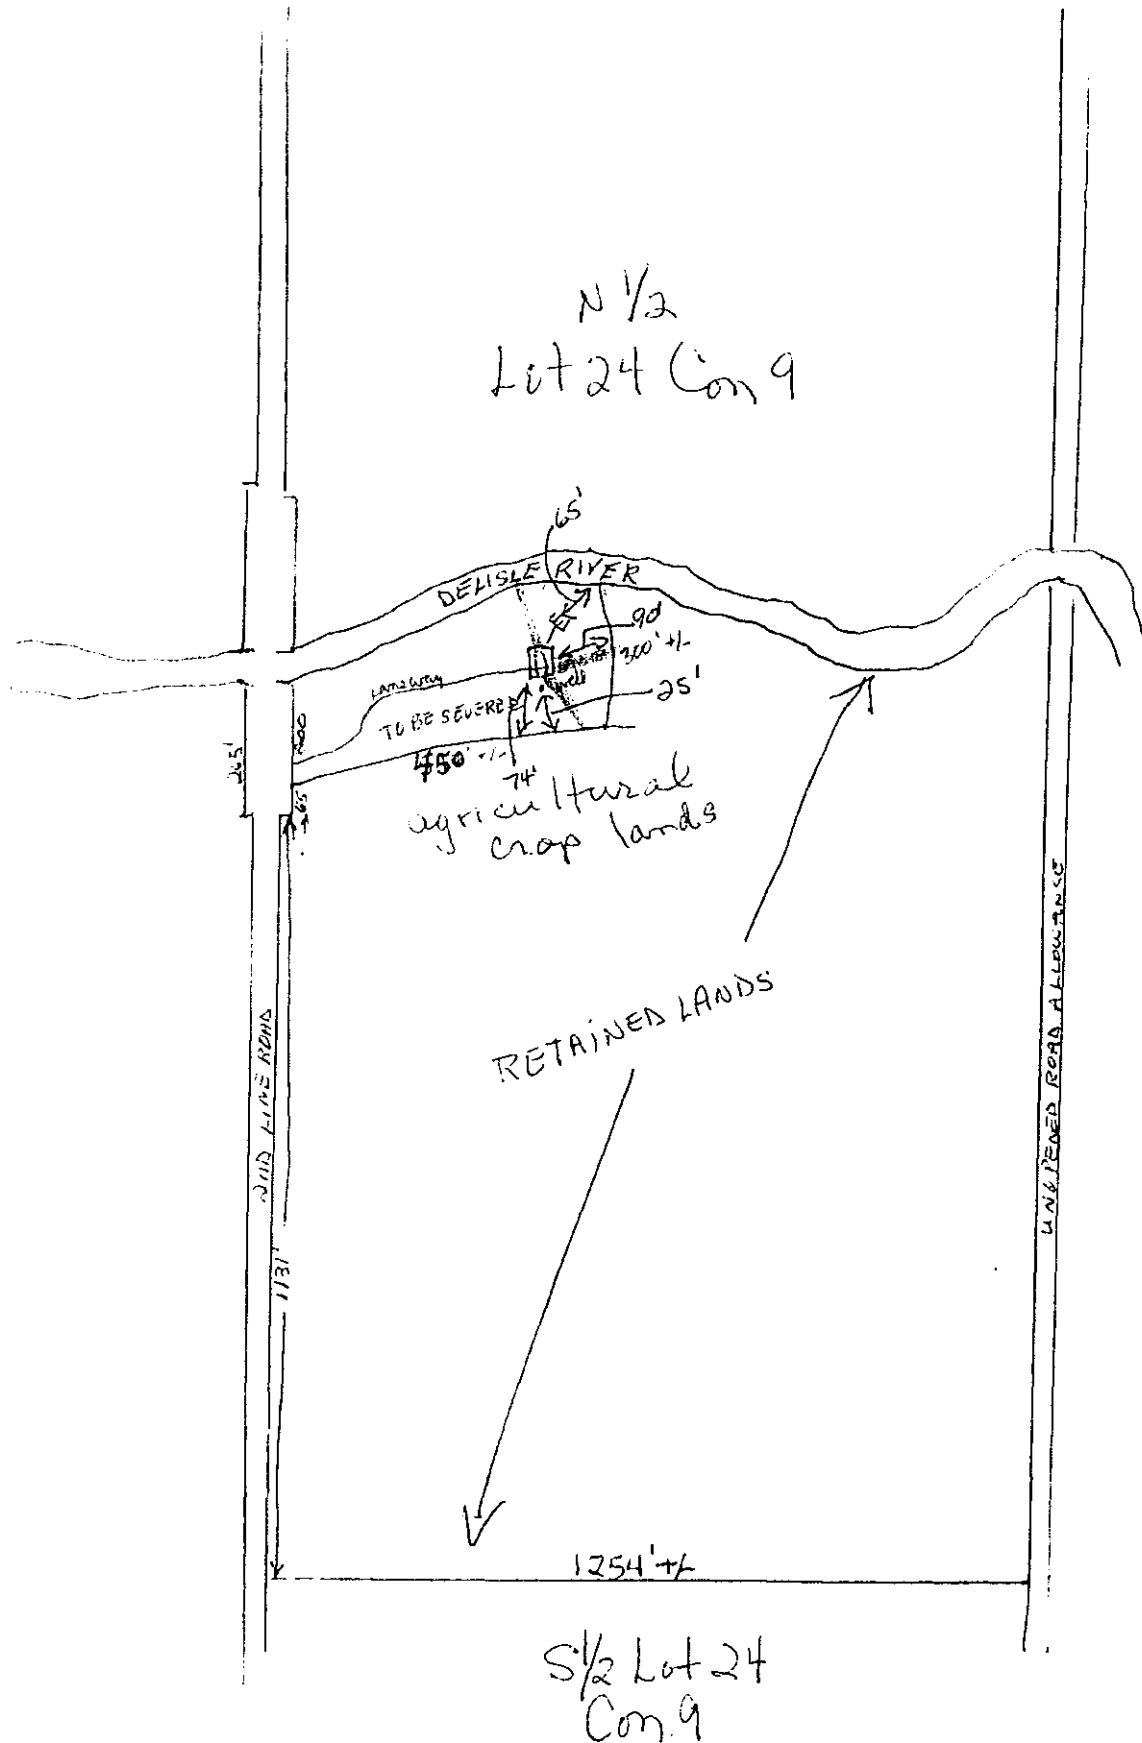 N 1/2
Lot 24 Con 9
65'
DELISLE RIVER
90'
300' +/-
Laneway
well
25'
TO BE SEVERED
200
265'
450' +/-
74'
65
agricultural
crop lands
RETAINED LANDS
2ND LINE ROAD
UNOPENED ROAD ALLOWANCE
1131'
1254' +/-
S 1/2 Lot 24
Con. 9